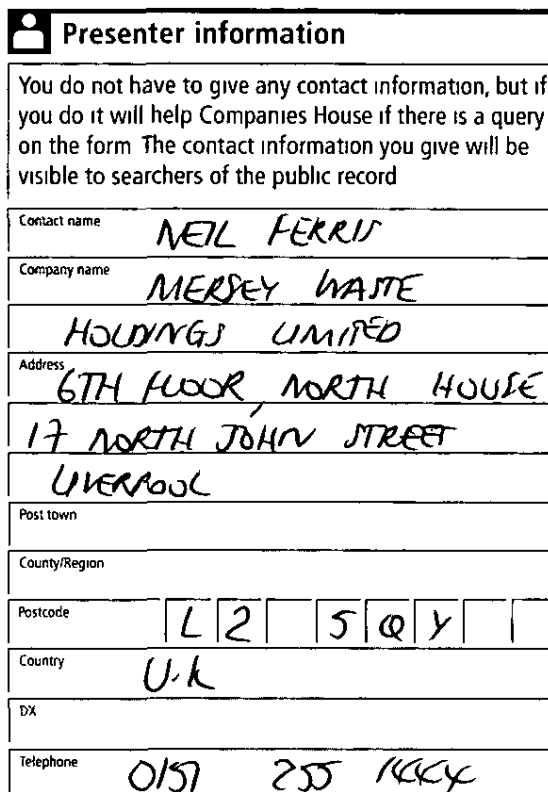 Presenter information
You do not have to give any contact information, but if
you do it will help Companies House if there is a query
on the form The contact information you give will be
visible to searchers of the public record
Contact name NEIL FERRIS
Company name MERSEY WASTE
HOLDINGS LIMITED
Address 6TH FLOOR, NORTH HOUSE
17 NORTH JOHN STREET
LIVERPOOL
Post town
County/Region
Postcode L2 5QY
Country U.K
DX
Telephone 0151 255 1444